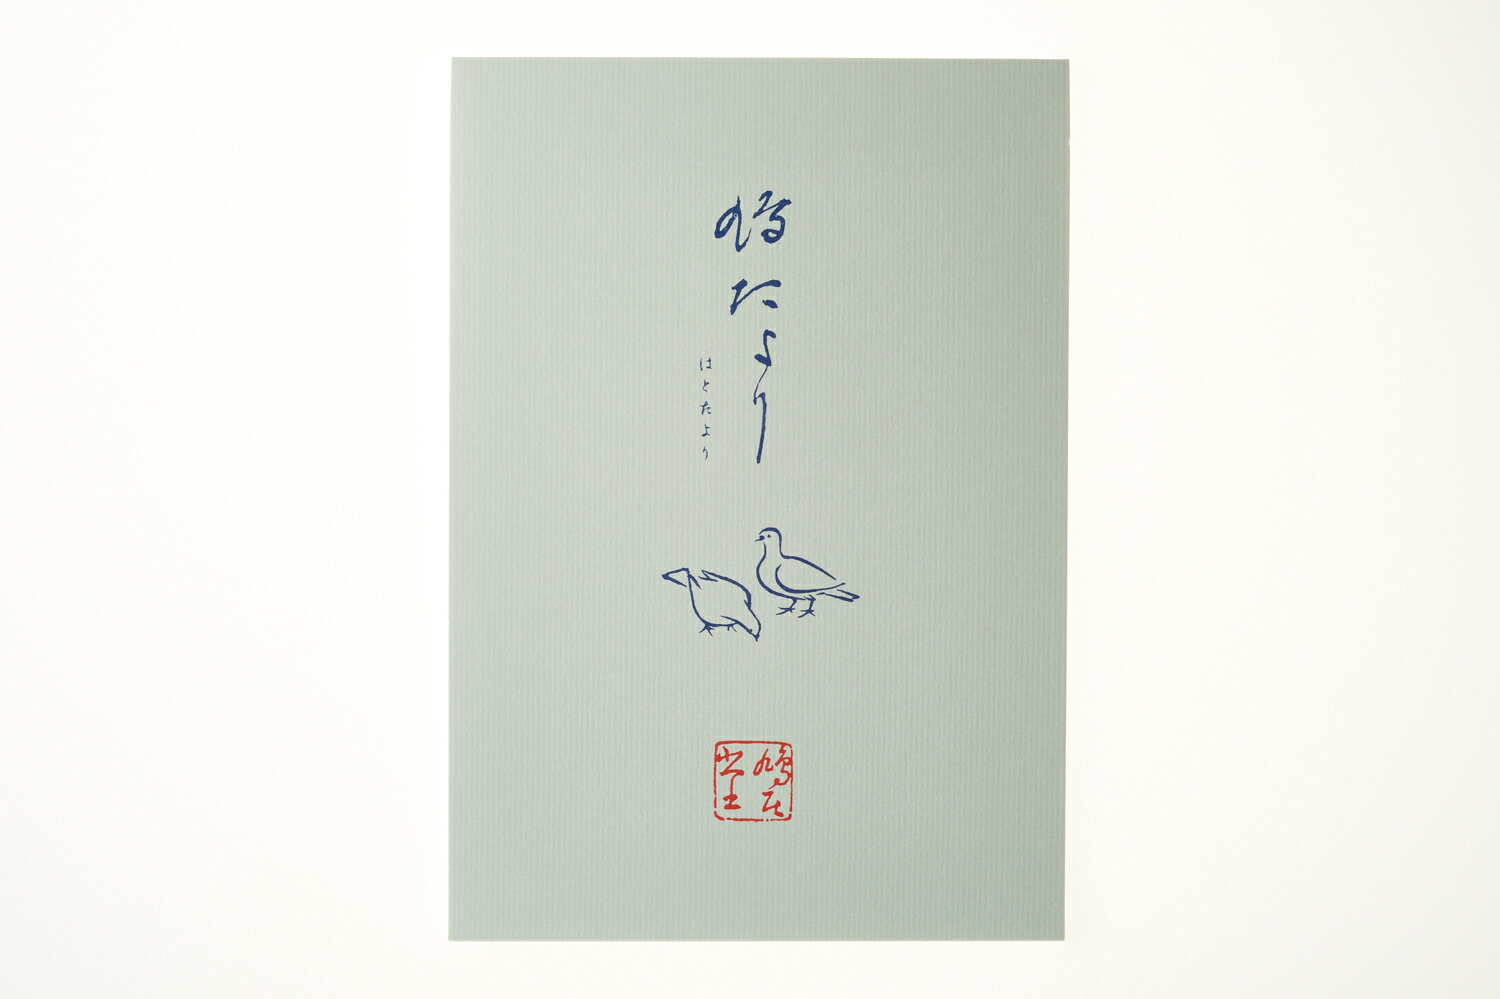 鳩だより
はとたより
鳩居堂